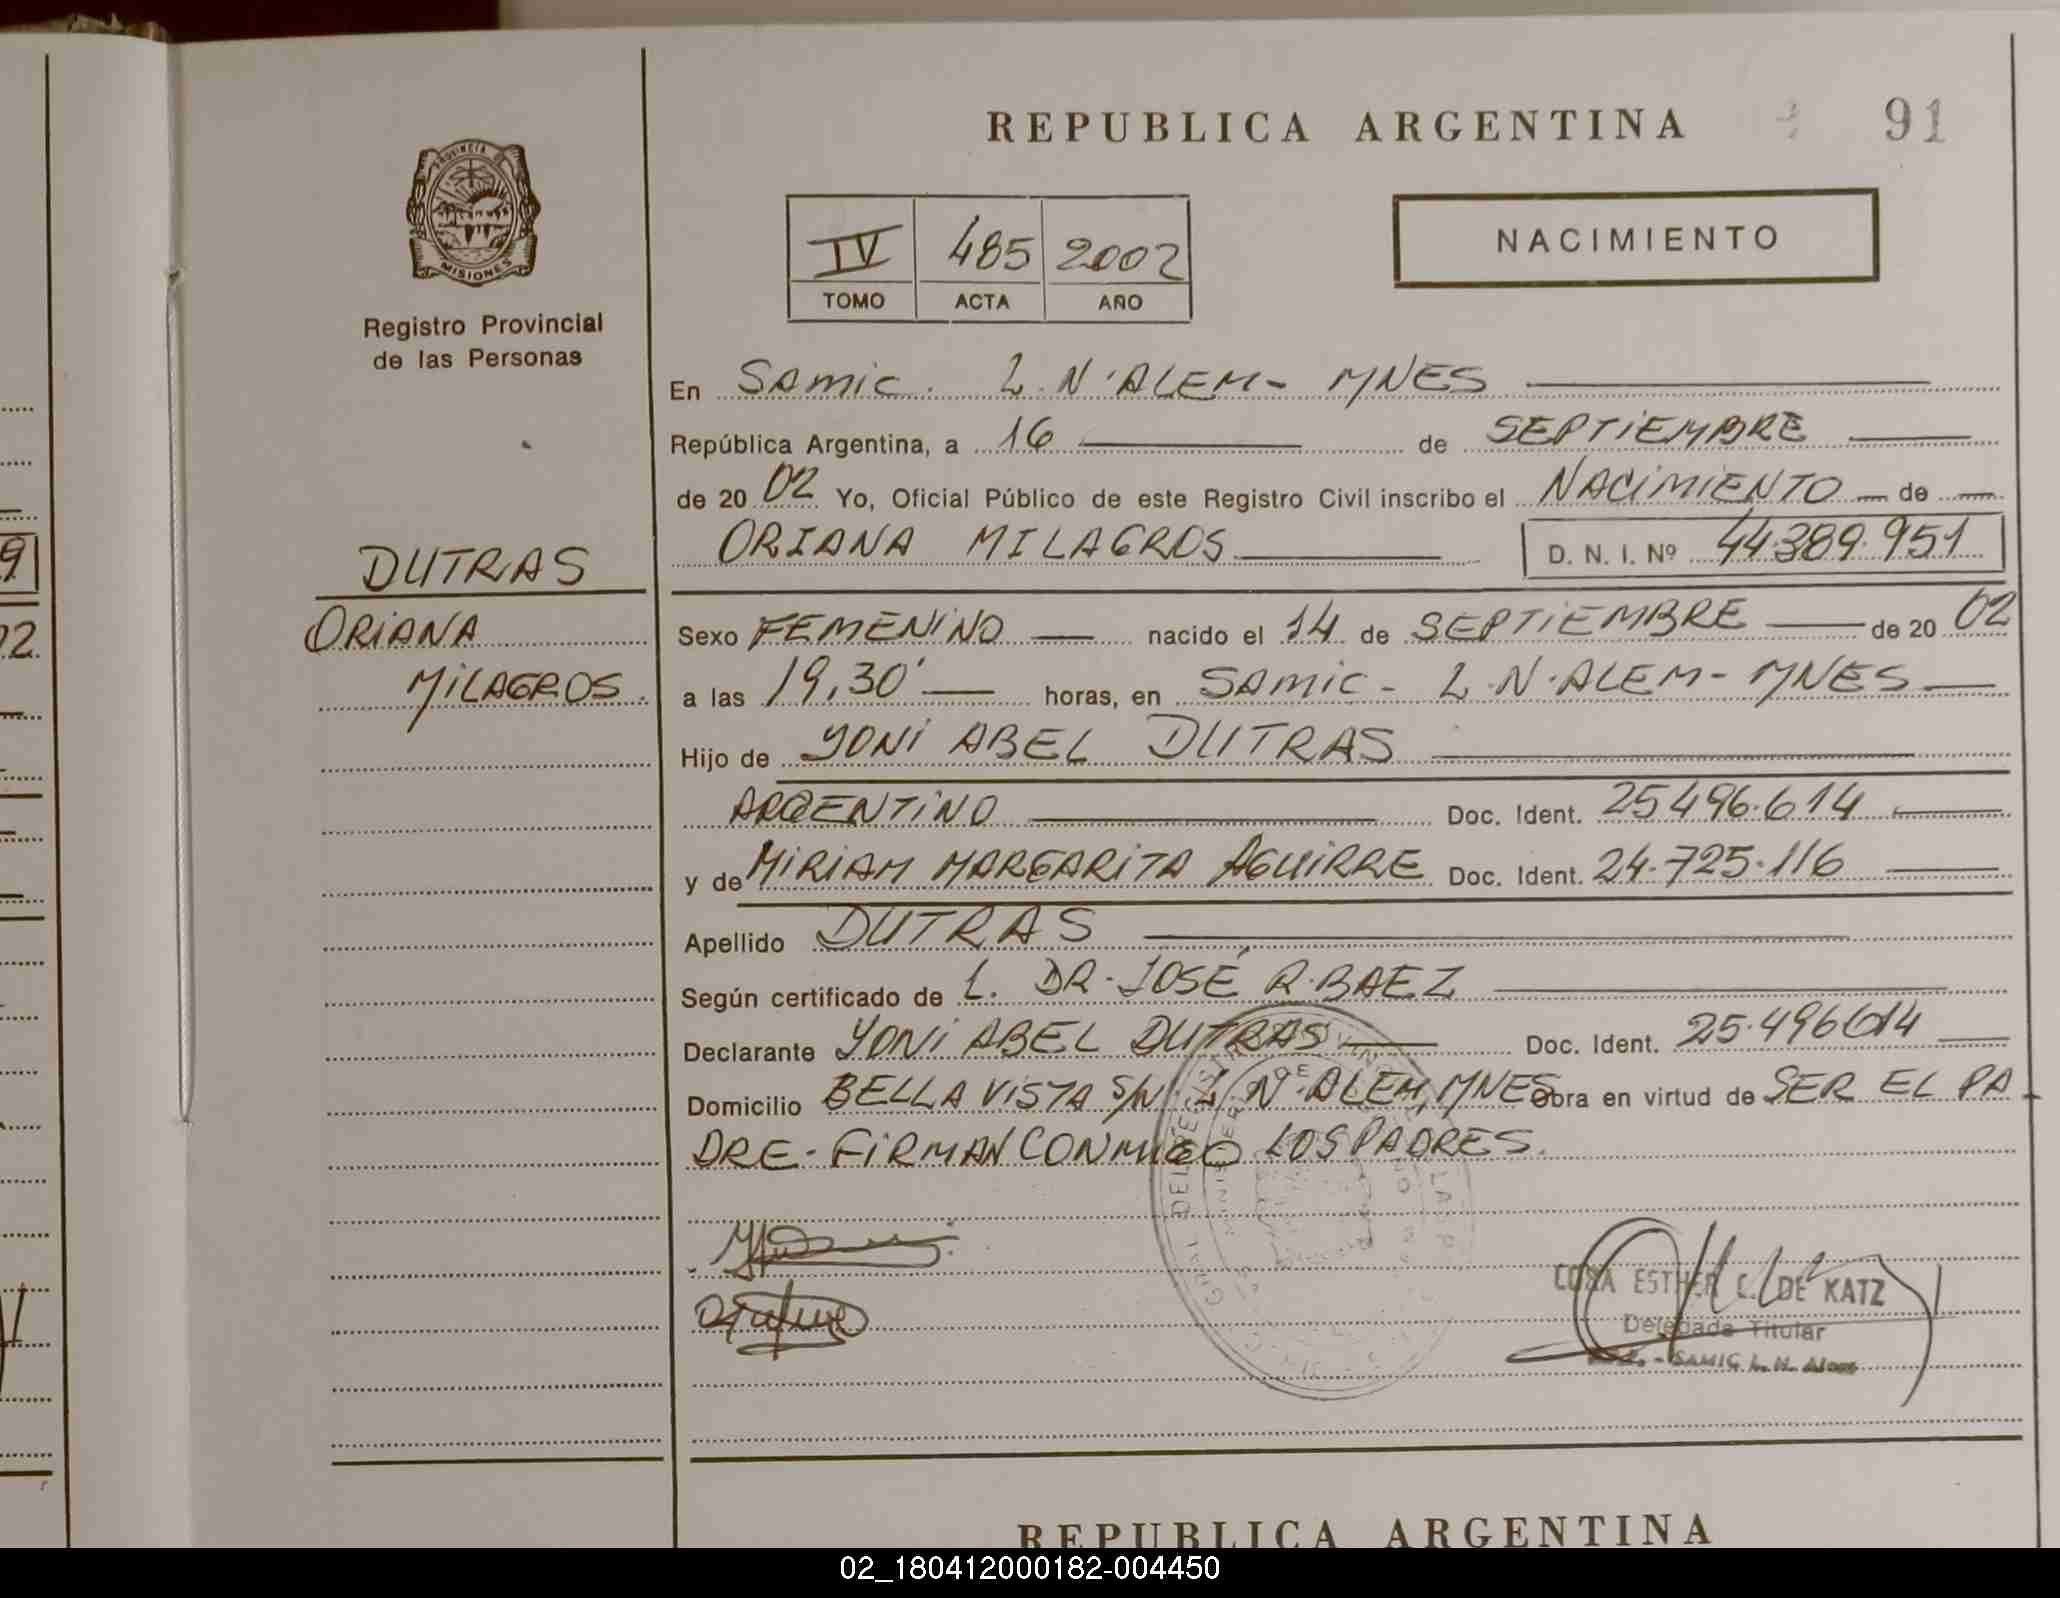 REPUBLICA ARGENTINA 91
PROVINCIA DE
MISIONES
Registro Provincial
de las Personas
NACIMIENTO
IV 485 2002
TOMO ACTA AÑO
En SAMIC. L.N.ALEM- MNES
República Argentina, a 16 de SEPTIEMBRE
de 2002 Yo, Oficial Público de este Registro Civil inscribo el NACIMIENTO de
ORIANA MILAGROS D. N. I. Nº 44.389.951
DUTRAS
ORIANA
MILAGROS.
Sexo FEMENINO nacido el 14 de SEPTIEMBRE de 2002
a las 19,30' horas, en SAMIC- L.N.ALEM- MNES
Hijo de YONI ABEL DUTRAS
ARGENTINO Doc. Ident. 25496.614
y de MIRIAM MARGARITA AGUIRRE Doc. Ident. 24.725.116
Apellido DUTRAS
Según certificado de L. DR. JOSÉ R. BAEZ
Declarante YONI ABEL DUTRAS Doc. Ident. 25.496614
Domicilio BELLA VISTA S/N L.N.ALEM, MNES Obra en virtud de SER EL PA-
DRE- FIRMAN CONMIGO LOS PADRES.
ESTHER C. DE KATZ
Delegada Titular
SAMIC L. N. Alem
REPUBLICA ARGENTINA
02_180412000182-004450